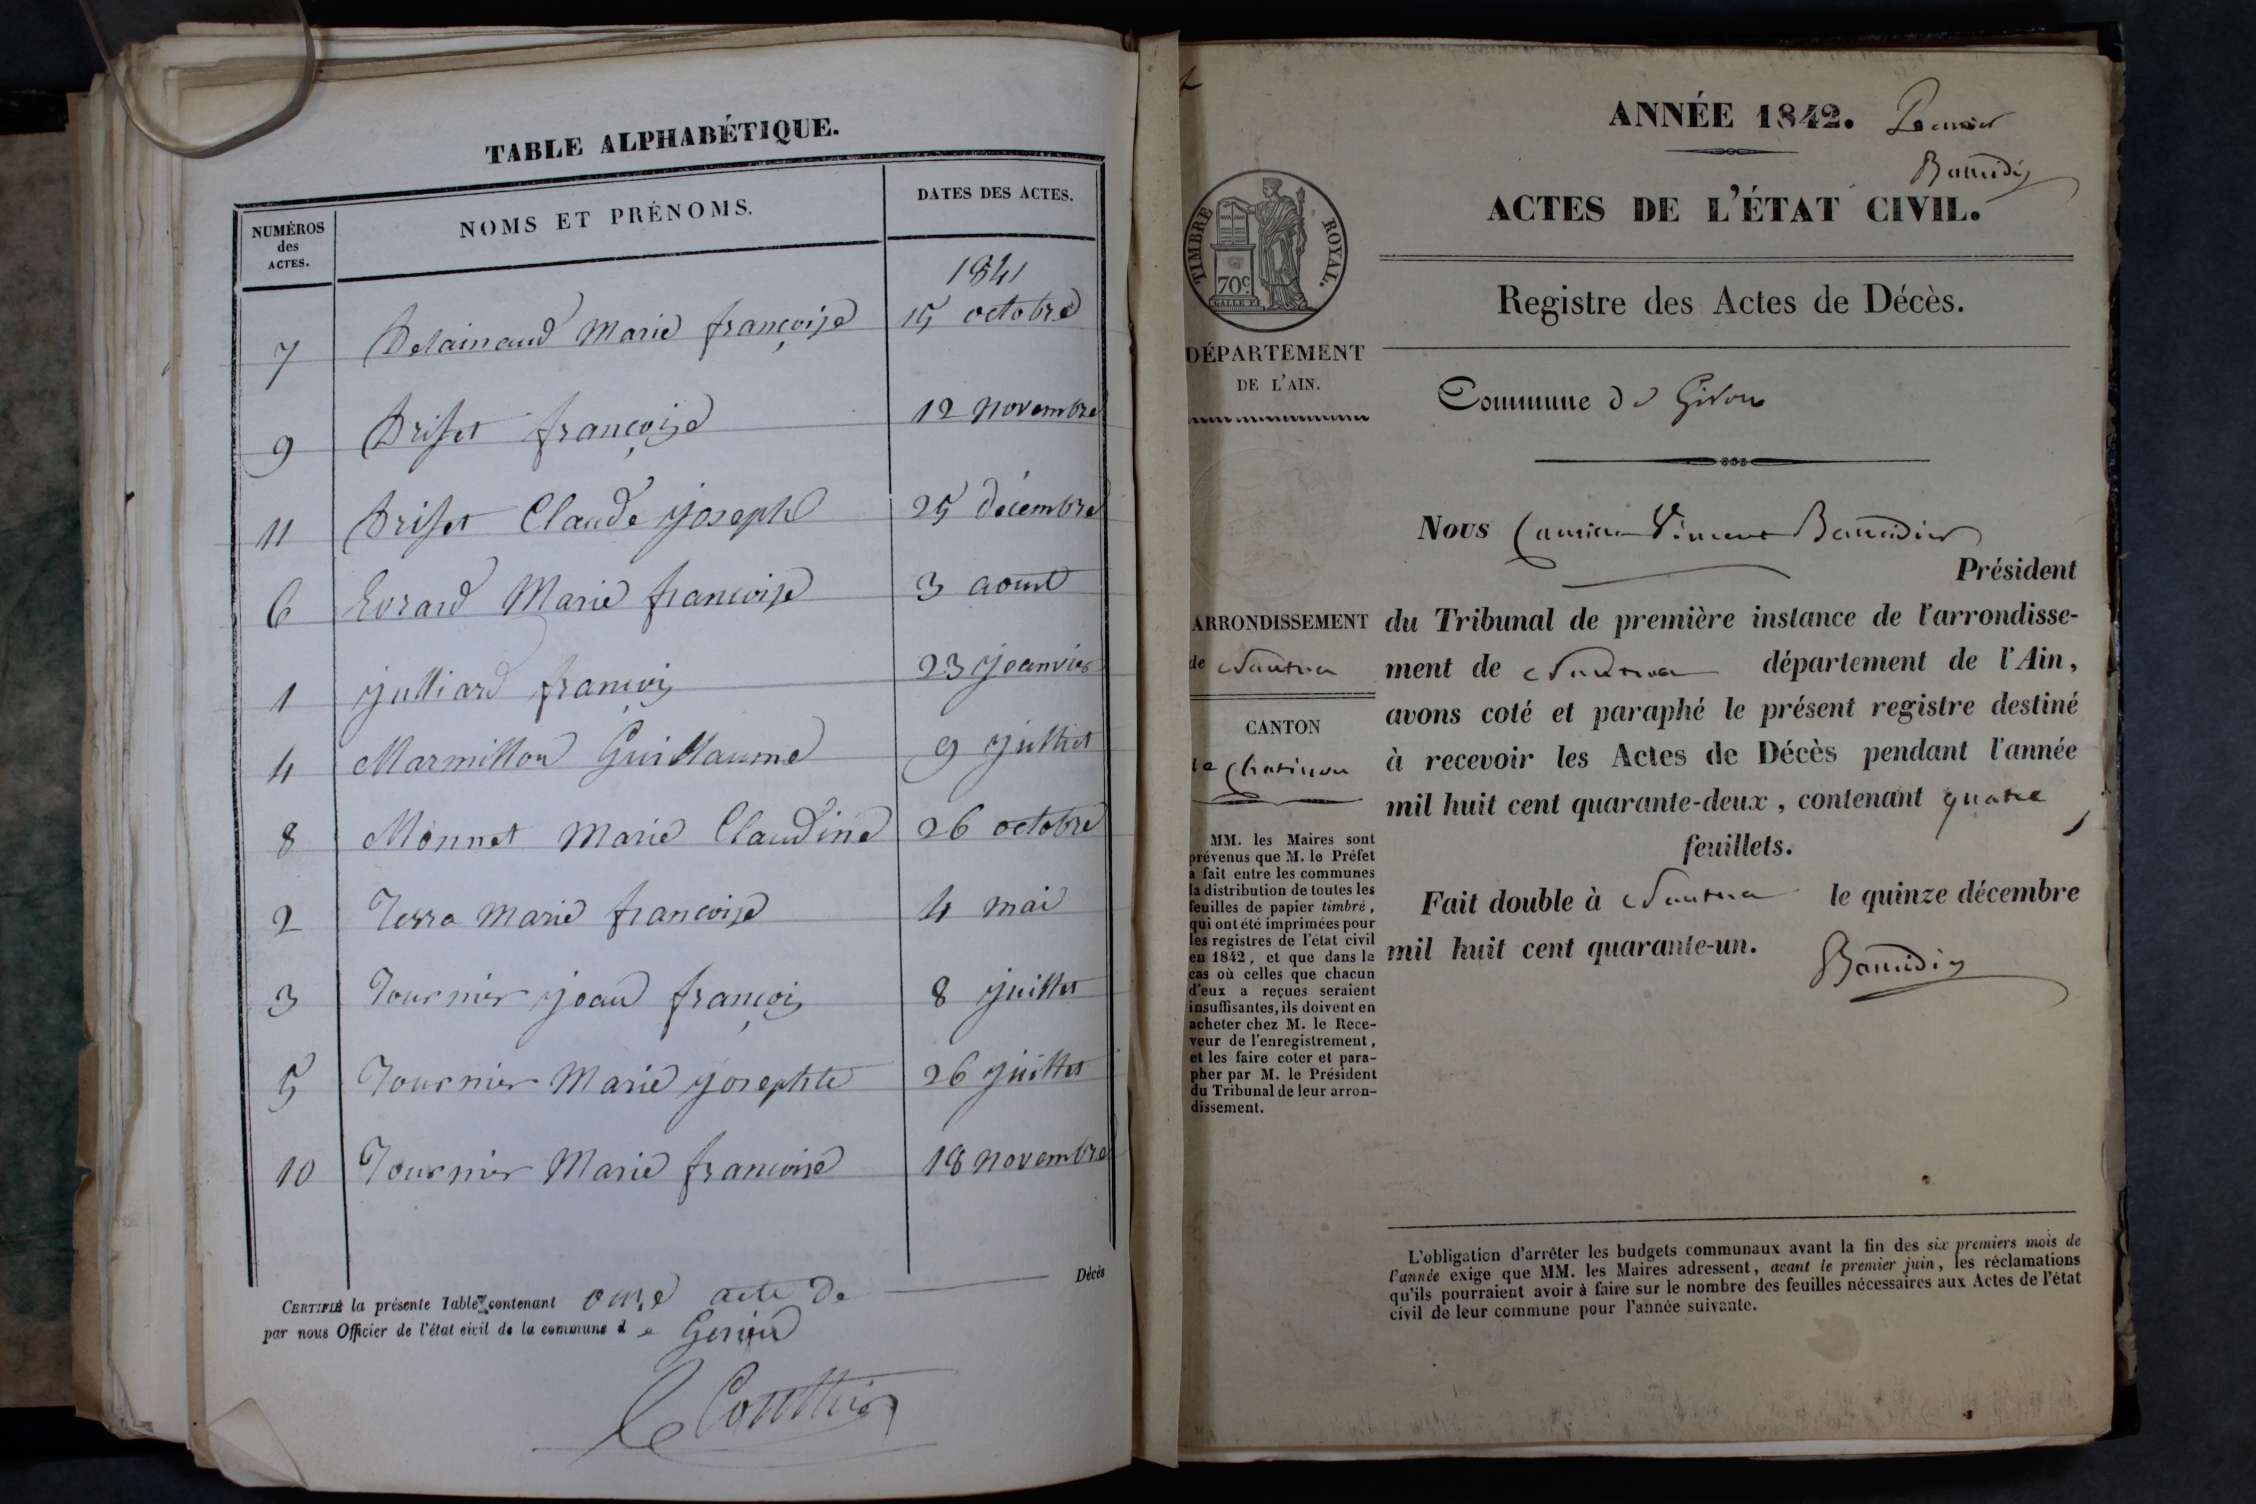 TABLE ALPHABÉTIQUE.
NUMÉROS
des
ACTES.
NOMS ET PRÉNOMS.
DATES DES ACTES.
1841
7 Delainaud Marie françoise 15 octobre
9 Driset françoise 12 novembre
11 Driset Claude joseph 25 décembre
6 Evrard Marie francoise 3 aout
1 julliard françois 23 janvier
4 Marmillon Guillaume 9 juillet
8 Monnet Marie Claudine 26 octobre
2 Terra Marie francoise 4 mai
3 Tournier jean françois 8 juillet
5 Tournier Marie josephte 26 juillet
10 Tournier Marie francoise 18 novembre
CERTIFIÉ la présente Table contenant onze acte de Décès
par nous Officier de l'état civil de la commune de
ANNÉE 1842. Premier
Baudin
ACTES DE L'ÉTAT CIVIL.
TIMBRE ROYAL.
70c
GALLE F.
Registre des Actes de Décès.
DÉPARTEMENT
DE L'AIN.
Commune de Giron
Nous Vincent
Président
ARRONDISSEMENT
de Nantua
CANTON
de Chatillon
MM. les Maires sont
prévenus que M. le Préfet
a fait entre les communes
la distribution de toutes les
feuilles de papier timbré,
qui ont été imprimées pour
les registres de l'état civil
en 1842, et que dans le
cas où celles que chacun
d'eux a reçues seraient
insuffisantes, ils doivent en
acheter chez M. le Rece-
veur de l'enregistrement,
et les faire coter et para-
pher par M. le Président
du Tribunal de leur arron-
dissement.
du Tribunal de première instance de l'arrondisse-
ment de Nantua département de l'Ain,
avons coté et paraphé le présent registre destiné
à recevoir les Actes de Décès pendant l'année
mil huit cent quarante-deux, contenant quatre
feuillets.
Fait double à Nantua le quinze décembre
mil huit cent quarante-un.
L'obligation d'arrêter les budgets communaux avant la fin des six premiers mois de
l'année exige que MM. les Maires adressent, avant le premier juin, les réclamations
qu'ils pourraient avoir à faire sur le nombre des feuilles nécessaires aux Actes de l'état
civil de leur commune pour l'année suivante.